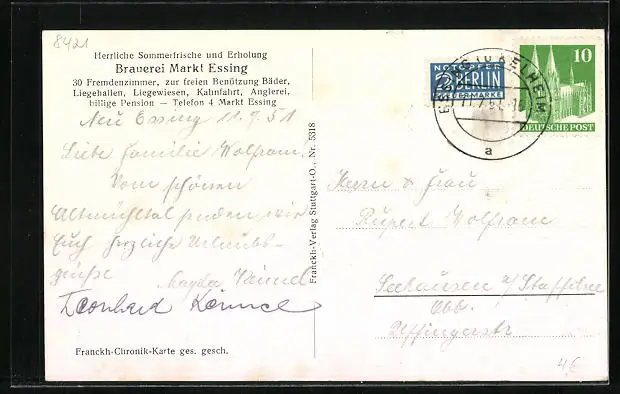 8421
Herrliche Sommerfrische und Erholung
Brauerei Markt Essing
30 Fremdenzimmer, zur freien Benützung Bäder,
Liegehallen, Liegewiesen, Kahnfahrt, Anglerei,
billige Pension — Telefon 4 Markt Essing
Neu Essing 11.7.51
Liebe Familie Wolfram!
Vom schönen
Altmühltal senden wir
Euch herzliche Urlaubs-
grüße
Leonhard
Franckh-Chronik-Karte ges. gesch.
Franckh-Verlag Stuttgart-O., Nr. 5318
NOTOPFER
2 BERLIN
STEUERMARKE
KELHEIM
a
10
DEUTSCHE POST
Herrn & Frau
Rupert Wolfram
Seehausen a/Staffelsee
Obb.
Uffingerstr
4€